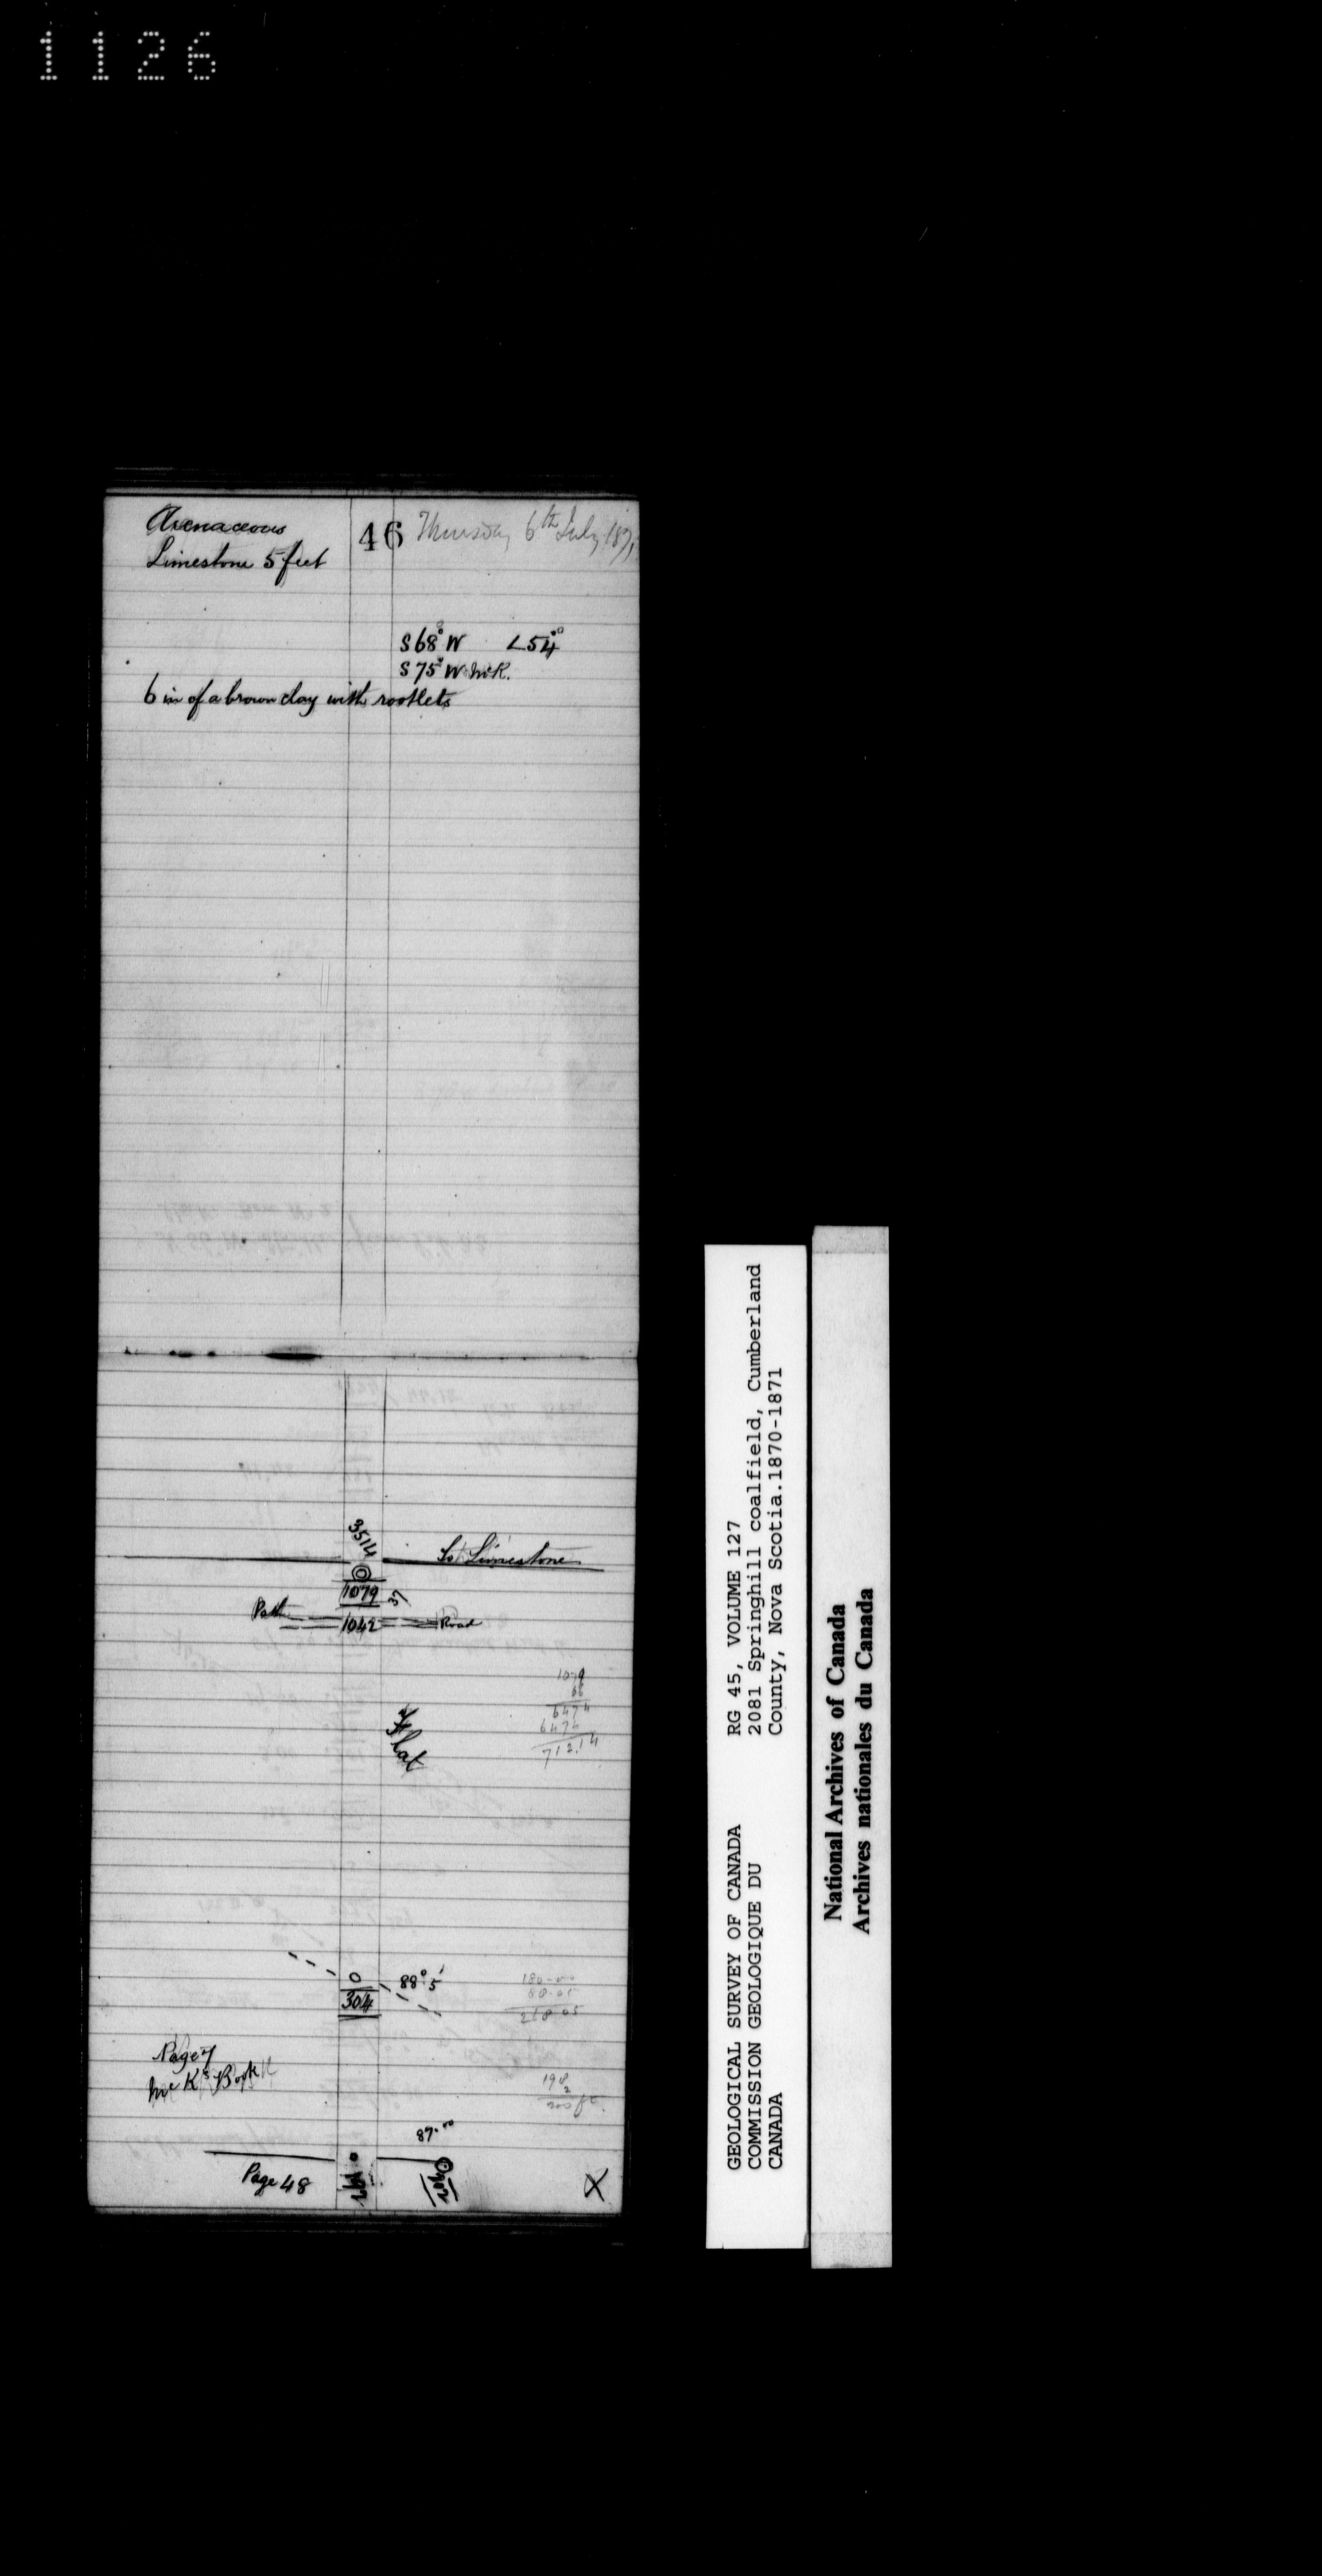 1126
46
Thursday 6th July 1871
Arenaceous
Limestone 5 feet
S 68° W L 54°
S 75° W McK.
6 in of a brown clay with rootlets
3514
Limestone
1079
37
Path 1042 Road
1079
66
6474
6474
712.14
Flat
88° 5'
304
180-00
88-05
268-05
Page 7
McK's Book
198
2
200 ft.
87.00
Page 48
X
GEOLOGICAL SURVEY OF CANADA
COMMISSION GEOLOGIQUE DU
CANADA
RG 45, VOLUME 127
2081 Springhill coalfield, Cumberland
County, Nova Scotia.1870-1871
National Archives of Canada
Archives nationales du Canada